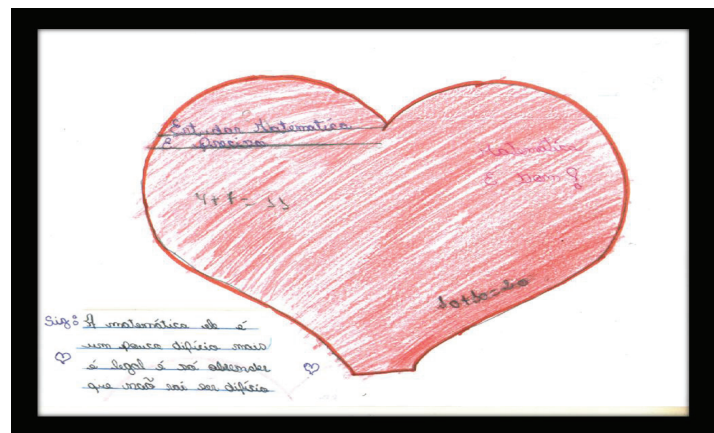 Estudar Matematica
É Preciso
Matematica
É Bom
4+7= 11
10+10=20
Sig: A matemática ela é
um pouco difício mais
é legal é só aprender
que não vai ser difício